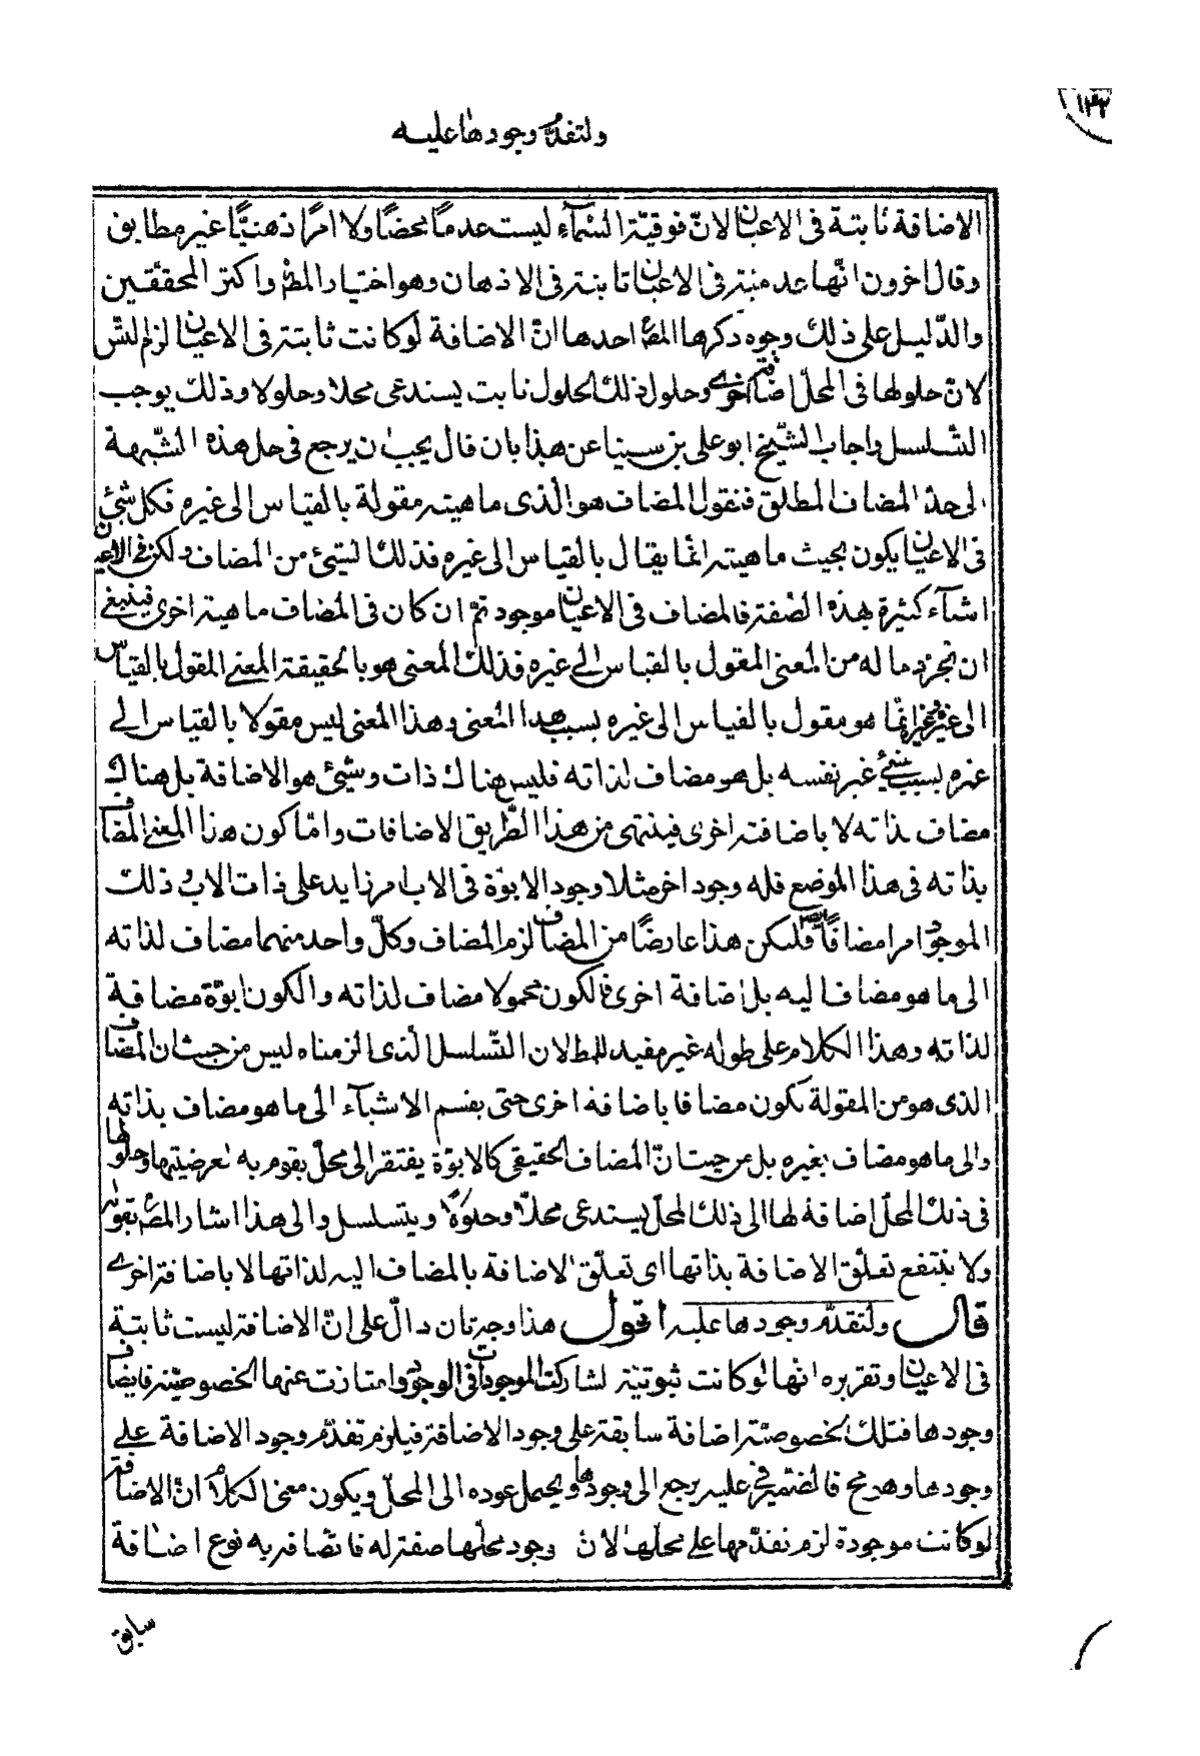 ١٣٢
ولتقدّم وجودها عليه
الاضافة ثابتة فى الاعيان لانّ فوقيّة السّمآء ليست عدمًا محضًا ولا امرًا ذهنيًّا غير مطابق
وقال اخرون انّها عدميّة فى الاعيان ثابتة فى الاذهان وهو اختيار المصّ واكثر المحققين
والدّليل على ذلك وجوه ذكرها المصّ احدها انّ الاضافة لو كانت ثابتة فى الاعيان لزم التّس
لانّ حلولها فى المحلّ اضافة اخرى وحلول ذلك الحلول ثابت يستدعى محلا وحلولا وذلك يوجب
التّسلسل واجاب الشّيخ ابو على بن سينا عن هذا بان قال يجب ان يرجع فى حل هذه الشّبهة
الى حدّ المضاف المطلق فنقول المضاف هو الّذى ماهيته مقولة بالقياس الى غيره فكل شئ
فى الاعيان يكون بحيث ماهيته انّما يقال بالقياس الى غيره فذلك الشئ من المضاف ولكن فى الاعيان
اشيآء كثيرة بهذه الصّفة فالمضاف فى الاعيان موجود ثمّ ان كان فى المضاف ماهية اخرى فينبغى
ان نجرّد ما له من المعنى المقول بالقياس الى غيره فذلك المعنى هو بالحقيقة المعنى المقول بالقياس
الى غيره وغيره انّما هو مقول بالقياس الى غيره بسبب هذا المعنى وهذا المعنى ليس مقولا بالقياس الى
غيره بسبب شئ غير نفسه بل هو مضاف لذاته فليس هناك ذات وشئ هو الاضافة بل هناك
مضاف بذاته لا باضافة اخرى فينتهى من هذا الطّريق الاضافات وامّا كون هذا المعنى المضاف
بذاته فى هذا الموضع فله وجود اخر مثلا وجود الابوّة فى الاب امر زايد على ذات الاب وذلك
الموجود امر مضاف ايضًا فليكن هذا عارضًا من المضاف لزم المضاف وكلّ واحد منهما مضاف لذاته
الى ما هو مضاف اليه بل اضافة اخرى فالكون محمولا مضاف لذاته والكون ابوّة مضافة
لذاته وهذا الكلام على طوله غير مفيد للمطلان التّسلسل الّذى الزمناه ليس من حيث ان المضاف
الذى هو من المقولة تكون مضافا باضافة اخرى حتى يقسم الاشيآء الى ما هو مضاف بذاته
والى ما هو مضاف بغيره بل من حيث انّ المضاف الحقيقى كالابوّة يفتقر الى محلّ يقوم به لعرضيتها وحلولها
فى ذلك المحلّ اضافة لها الى ذلك المحلّ يستدعى محلّا وحلولًا ويتسلسل والى هذا اشار المصّ بقوله
ولا ينتفع تعلّق الاضافة بذاتها اى تعلّق الاضافة بالمضاف اليه لذاتها لا باضافة اخرى
قال ولتقدّم وجودها عليه اقول هذا وجه ثان دالّ على انّ الاضافة ليست ثابتة
فى الاعيان وتقريره انّها لو كانت ثبوتيّة لشاركت الموجودات فى الوجود وامتازت عنها بخصوصيّة فايضاف
وجودها فتلك الخصوصيّة اضافة سابقة على وجود الاضافة فيلزم تقدّم وجود الاضافة على
وجودها وهو مح فالضّمير فى عليه يرجع الى وجودها ويحتمل عوده الى المحلّ ويكون معنى الكلام انّ الاضافة
لو كانت موجودة لزم تقدّمها على محلّها لانّ وجود محلّها صفة له فاتّصافه به نوع اضافة
سابق